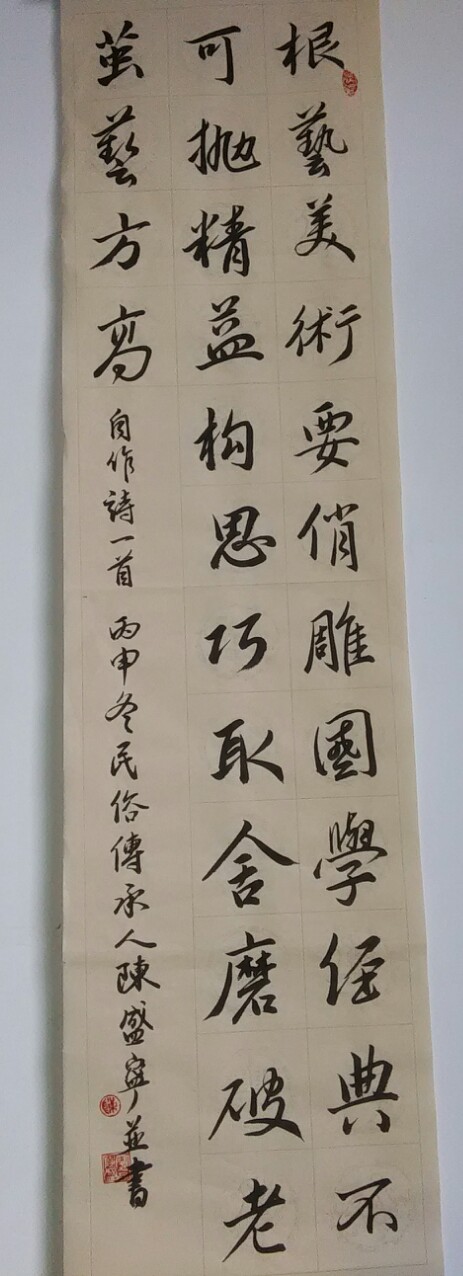 根藝美術要俏雕國學経典不
可抛精益构思巧取舍磨破老
茧藝方高
自作詩一首 丙申冬民俗傳承人陳盛寧並書